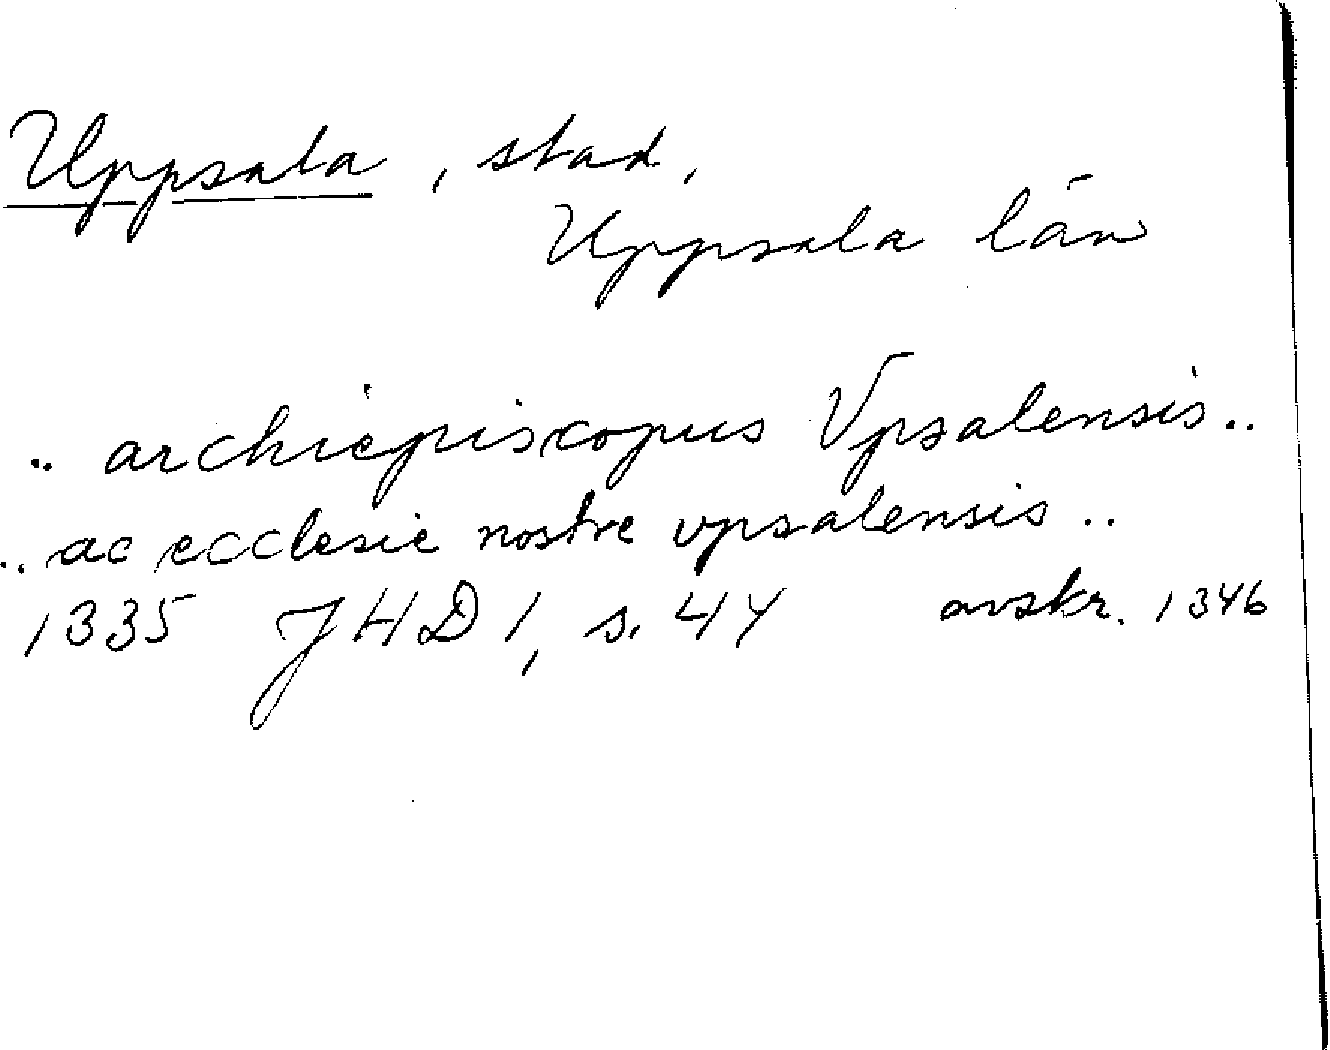 Uppsala, stad,
Uppsala län
.. archiepiscopus Vpsalensis..
.. ac ecclesie nostre vpsalensis ..
1335 JHD 1, s. 44 avskr. 1346